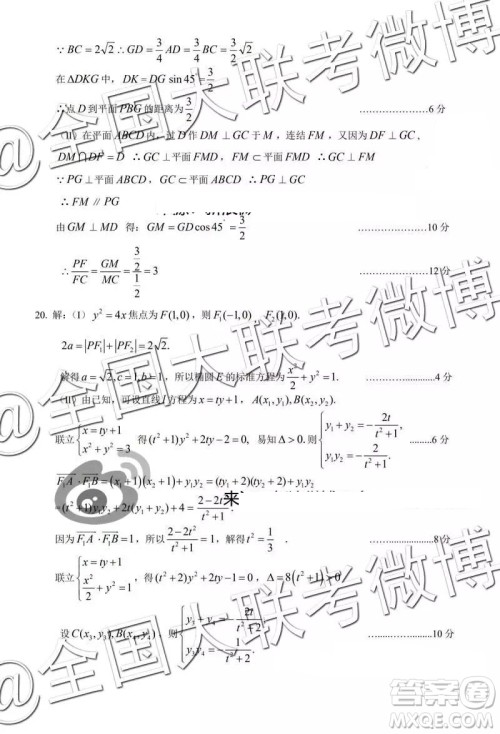 ∵ BC = 2√2 ∴ GD = 3/4 AD = 3/4 BC = 3/2 √2
在 ΔDKG 中，DK = DG sin 45° = 3/2
∴ 点 D 到平面 PBG 的距离为 3/2 ……………6分
（II）在平面 ABCD 内，过 D 作 DM ⊥ GC 于 M，连结 FM，又因为 DF ⊥ GC，
DM ∩ DF = D ∴ GC ⊥ 平面 FMD，FM ⊂ 平面 FMD ∴ GC ⊥ FM
∵ PG ⊥ 平面 ABCD，GC ⊂ 平面 ABCD ∴ PG ⊥ GC
∴ FM ∥ PG
由 GM ⊥ MD 得：GM = GD cos 45° = 3/2 ……………10分
∴ PF/FC = GM/MC = (3/2)/(1/2) = 3 ……………12分
20. 解：（I）y² = 4x 焦点为 F(1,0)，则 F₁(−1,0)，F₂(1,0).
2a = |PF₁| + |PF₂| = 2√2.
解得 a = √2, c = 1, b = 1，所以椭圆 E 的标准方程为 x²/2 + y² = 1. ……………4分
（II）由已知，可设直线 l 方程为 x = ty + 1，A(x₁,y₁), B(x₂,y₂).
联立 {x = ty + 1, x² + y² = 4} 得 (t²+1)y² + 2ty − 2 = 0，易知 Δ > 0. 则 {y₁ + y₂ = −2t/(t²+1), y₁y₂ = −2/(t²+1).} ……6分
F₁A · F₁B = (x₁+1)(x₂+1) + y₁y₂ = (ty₁+2)(ty₂+2) + y₁y₂
= (t²+1)y₁y₂ + 2t(y₁+y₂) + 4 = (2−2t²)/(t²+1).
因为 F₁A · F₁B = 1，所以 (2−2t²)/(t²+1) = 1，解得 t² = 1/3. ……………8分
联立 {x = ty + 1, x²/2 + y² = 1}，得 (t²+2)y² + 2ty − 1 = 0，Δ = 8(t²+1) > 0
设 C(x₃,y₃), B(x₄,y₄)，则 {y₃ + y₄ = −2t/(t²+2), y₃y₄ = −1/(t²+2).} ……………10分
@全国大联考微博
@全国大联考微博
@全国大联考微博
来
答案圈
MXQE.COM